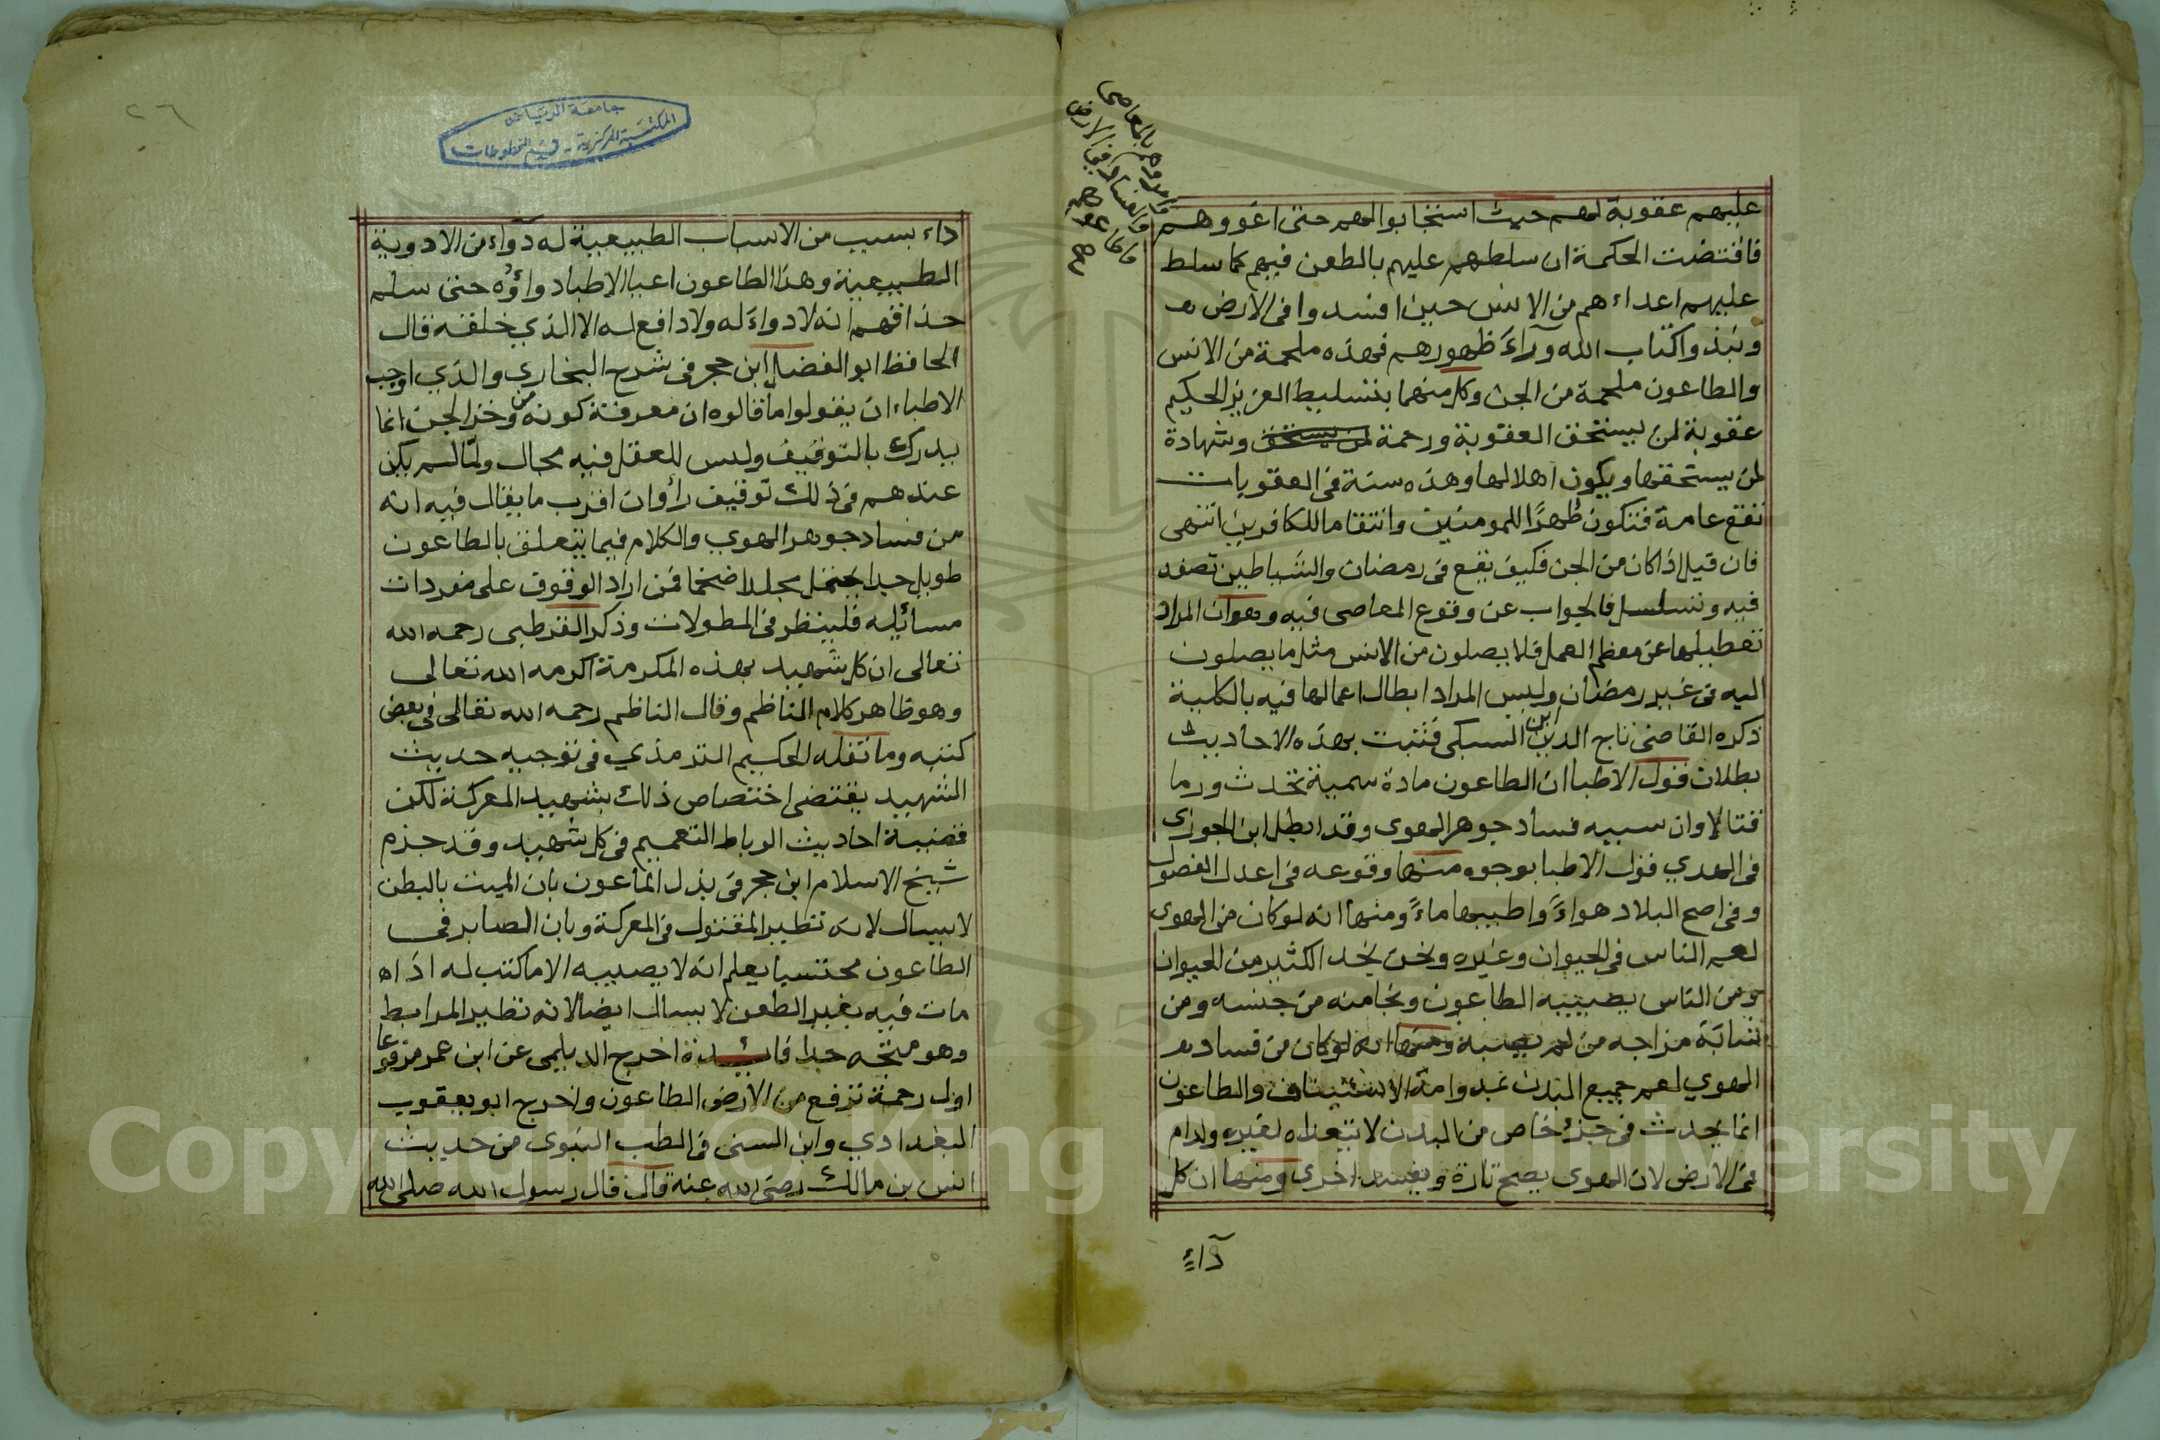 عليهم عقوبة لهم حيث استجابوا لهم حتى اغووهم
وامروهم بالمعاصي
والفساد في الارض
واطاعوهم
صح
فاقتضت الحكمة ان سلطهم عليهم بالطعن فيهم كما سلط
عليهم اعداءهم من الانس حين افسدوا في الارض
ونبذوا كتاب الله وراء ظهورهم فهذه ملحمة من الانس
والطاعون ملحمة من الجن وكل منهما بتسليط العزيز الحكيم
عقوبة لمن يستحق العقوبة ورحمة لمن يستحق وشهادة
لمن يستحقها ويكون اهلا لها وهذه سنة في العقوبات
تقع عامة فتكون طهرا للمومنين وانتقاما للكافرين انتهى
فان قيل اذا كان من الجن فكيف يقع في رمضان والشياطين تصفد
فيه وتسلسل فالجواب عن وقوع المعاصي فيه وهوان المراد
تعطيلها عن معظم العمل فلا يصلون من الانس مثل ما يصلون
اليه في غير رمضان وليس المراد ابطال اعمالها فيه بالكلية
ذكره القاضي تاج الدين ابن السبكي فثبت بهذه الاحاديث
بطلان قول الاطبا ان الطاعون مادة سمية تحدث ورما
قتالا وان سببه فساد جوهر الهوى وقد ابطل ابن الجوزى
في الهدي قول الاطبا بوجوه منها وقوعه في اعدل الفصول
وفي اصح البلاد هواءً واطيبها ماءً ومنها انه لو كان من الهوى
لعم الناس في الحيوان وغيره ونحن نجد الكثير من الحيوان
ومن الناس يصيبه الطاعون ونجا منه من جنسه ومن
شابه مزاجه من لم يصبه ومنها انه لو كان من فساد
الهوى لعم جميع البدن بمداومة الاستنشاق والطاعون
انما يحدث في جزء خاص من البدن لا يتعداه لغيره ولدام
في الارض لان الهوى يصح تارة ويفسد اخرى ومنها ان كل
داء
٢٦
جامعة الرياض
المكتبة المركزية - قسم المخطوطات
داء بسبب من الاسباب الطبيعية له دواء من الادوية
الطبيعية وهذا الطاعون اعيا الاطبا دواؤه حتى سلم
حذاقهم انه لا دواء له ولا دافع له الا الذي خلقه قال
الحافظ ابو الفضل ابن حجر في شرح البخاري والذي اوجب
الاطباء ان يقولوا ما قالوه ان معرفة كونه من وخز الجن انما
يدرك بالتوقيف وليس للعقل فيه مجال ولما لم يكن
عندهم في ذلك توقيف رأوا ان اقرب ما يقال فيه انه
من فساد جوهر الهوى والكلام فيما يتعلق بالطاعون
طويل جدا يحتمل مجلدا ضخما فمن اراد الوقوف على مفردات
مسائله فلينظر في المطولات وذكر القرطبي رحمه الله
تعالى ان كل شهيد بهذه المكرمة اكرمه الله تعالى
وهو ظاهر كلام الناظم وقال الناظم رحمه الله تعالى في بعض
كتبه وما نقله الحكيم الترمذي في توجيه حديث
الشهيد يقتضي اختصاص ذلك بشهيد المعركة لكن
قضية احاديث الرباط التعميم في كل شهيد وقد جزم
شيخ الاسلام ابن حجر في بذل الماعون بان الميت بالبطن
لا يسال لانه نظير المقتول في المعركة وبان الصابر في
الطاعون محتسبا يعلم انه لا يصيبه الا ما كتب له اذا
مات فيه بغير الطعن لا يسال ايضا لانه نظير المرابط
وهو متجه جدا فائدة اخرج الديلمى عن ابن عمر مرفوعا
اول رحمة ترفع من الارض الطاعون واخرج ابو يعقوب
البغدادي وابن السنى في الطب النبوى من حديث
انس بن مالك رضي الله عنه قال قال رسول الله صلى الله
Copyright © King Saud University